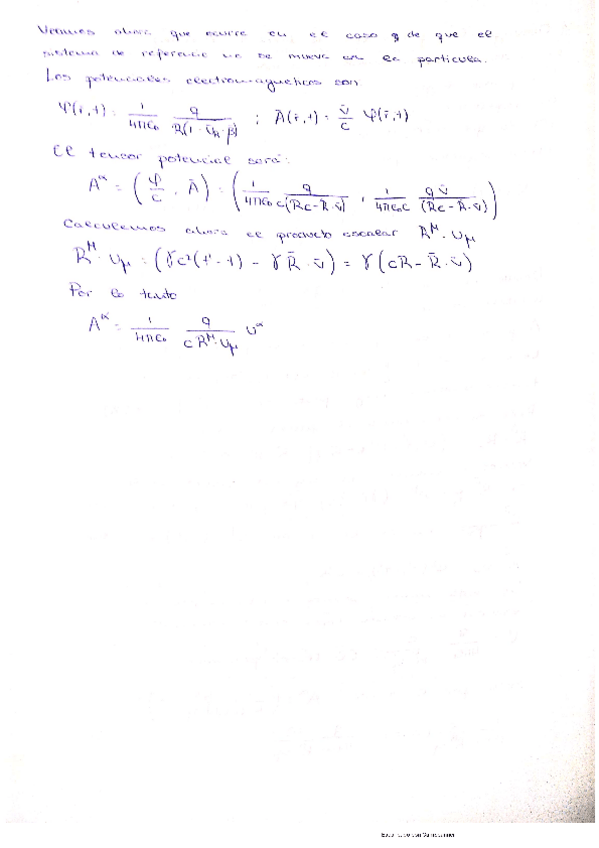 Veamos ahora que ocurre en el caso de que el
sistema de referencia no se mueva en la partícula.
Los potenciales electromagnéticos son
φ(r̄,t) = 1/(4πε₀) q/(R(1 - ū_R·β̄)) ; Ā(r̄,t) = v̄/c φ(r̄,t)
El tensor potencial será:
A^α = (φ/c, Ā) = (1/(4πε₀) q/(c(Rc - R̄·v̄)), 1/(4πε₀c) q v̄/(Rc - R̄·v̄))
Calculemos ahora el producto escalar R^μ·U_μ
R^μ·U_μ = (γc²(t'-t) - γR̄·v̄) = γ(cR - R̄·v̄)
Por lo tanto
A^α = 1/(4πε₀) q/(c R^μ·U_μ) U^α